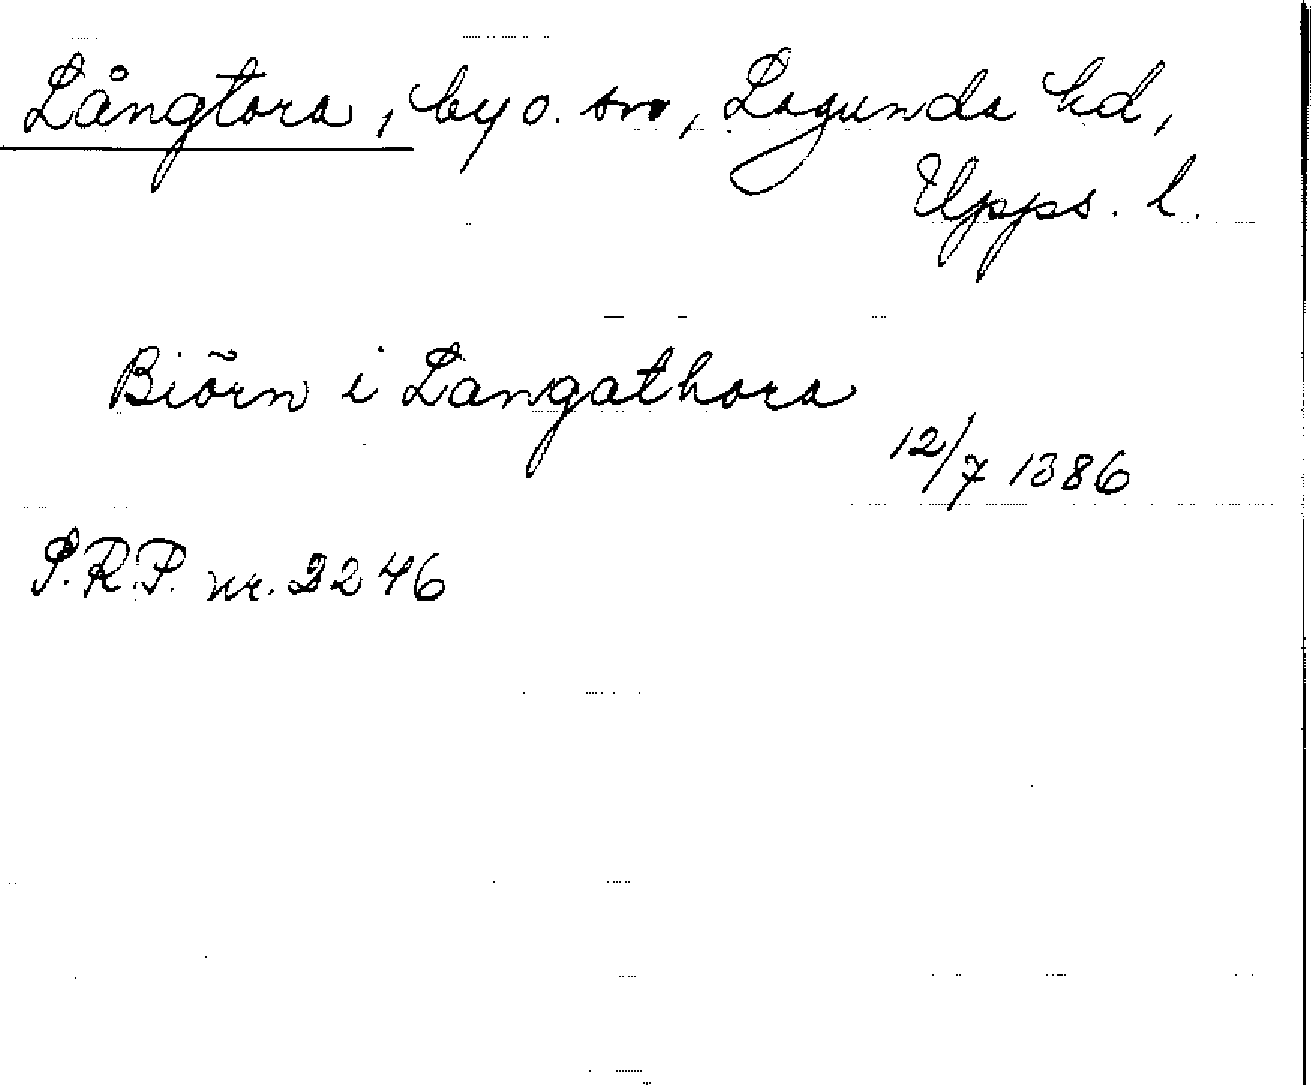 Långtora, by o. sn, Lagunda hd,
Upps. l.
Biörn i Langathora
12/7 1386
S.R.P. nr. 2246